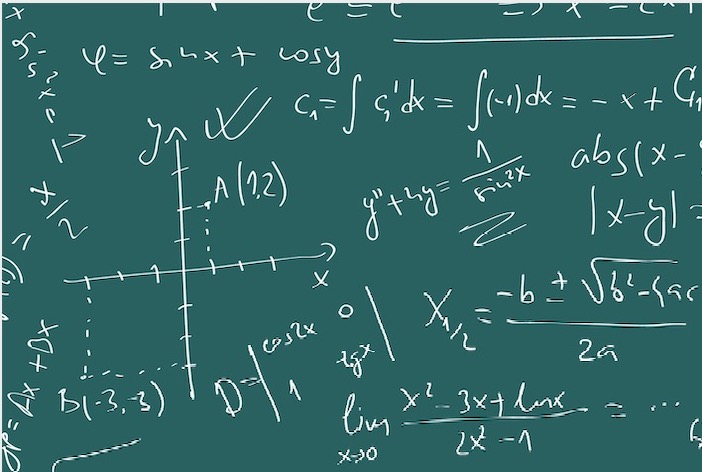 φ = sin x + cos y
C₁ = ∫ C₁' dx = ∫(-1) dx = - x + C₁
y
A(1,2)
x
B(-3,-3)
y'' + 4y = 1 / sin²x
abs(x -
|x-y| =
x/2
X₁/₂ = (-b ± √(b² - 4ac)) / 2a
D =
cos2x
1
0
tgx
lim x→0 (x² - 3x + ln x) / (2x² - 1) = ...